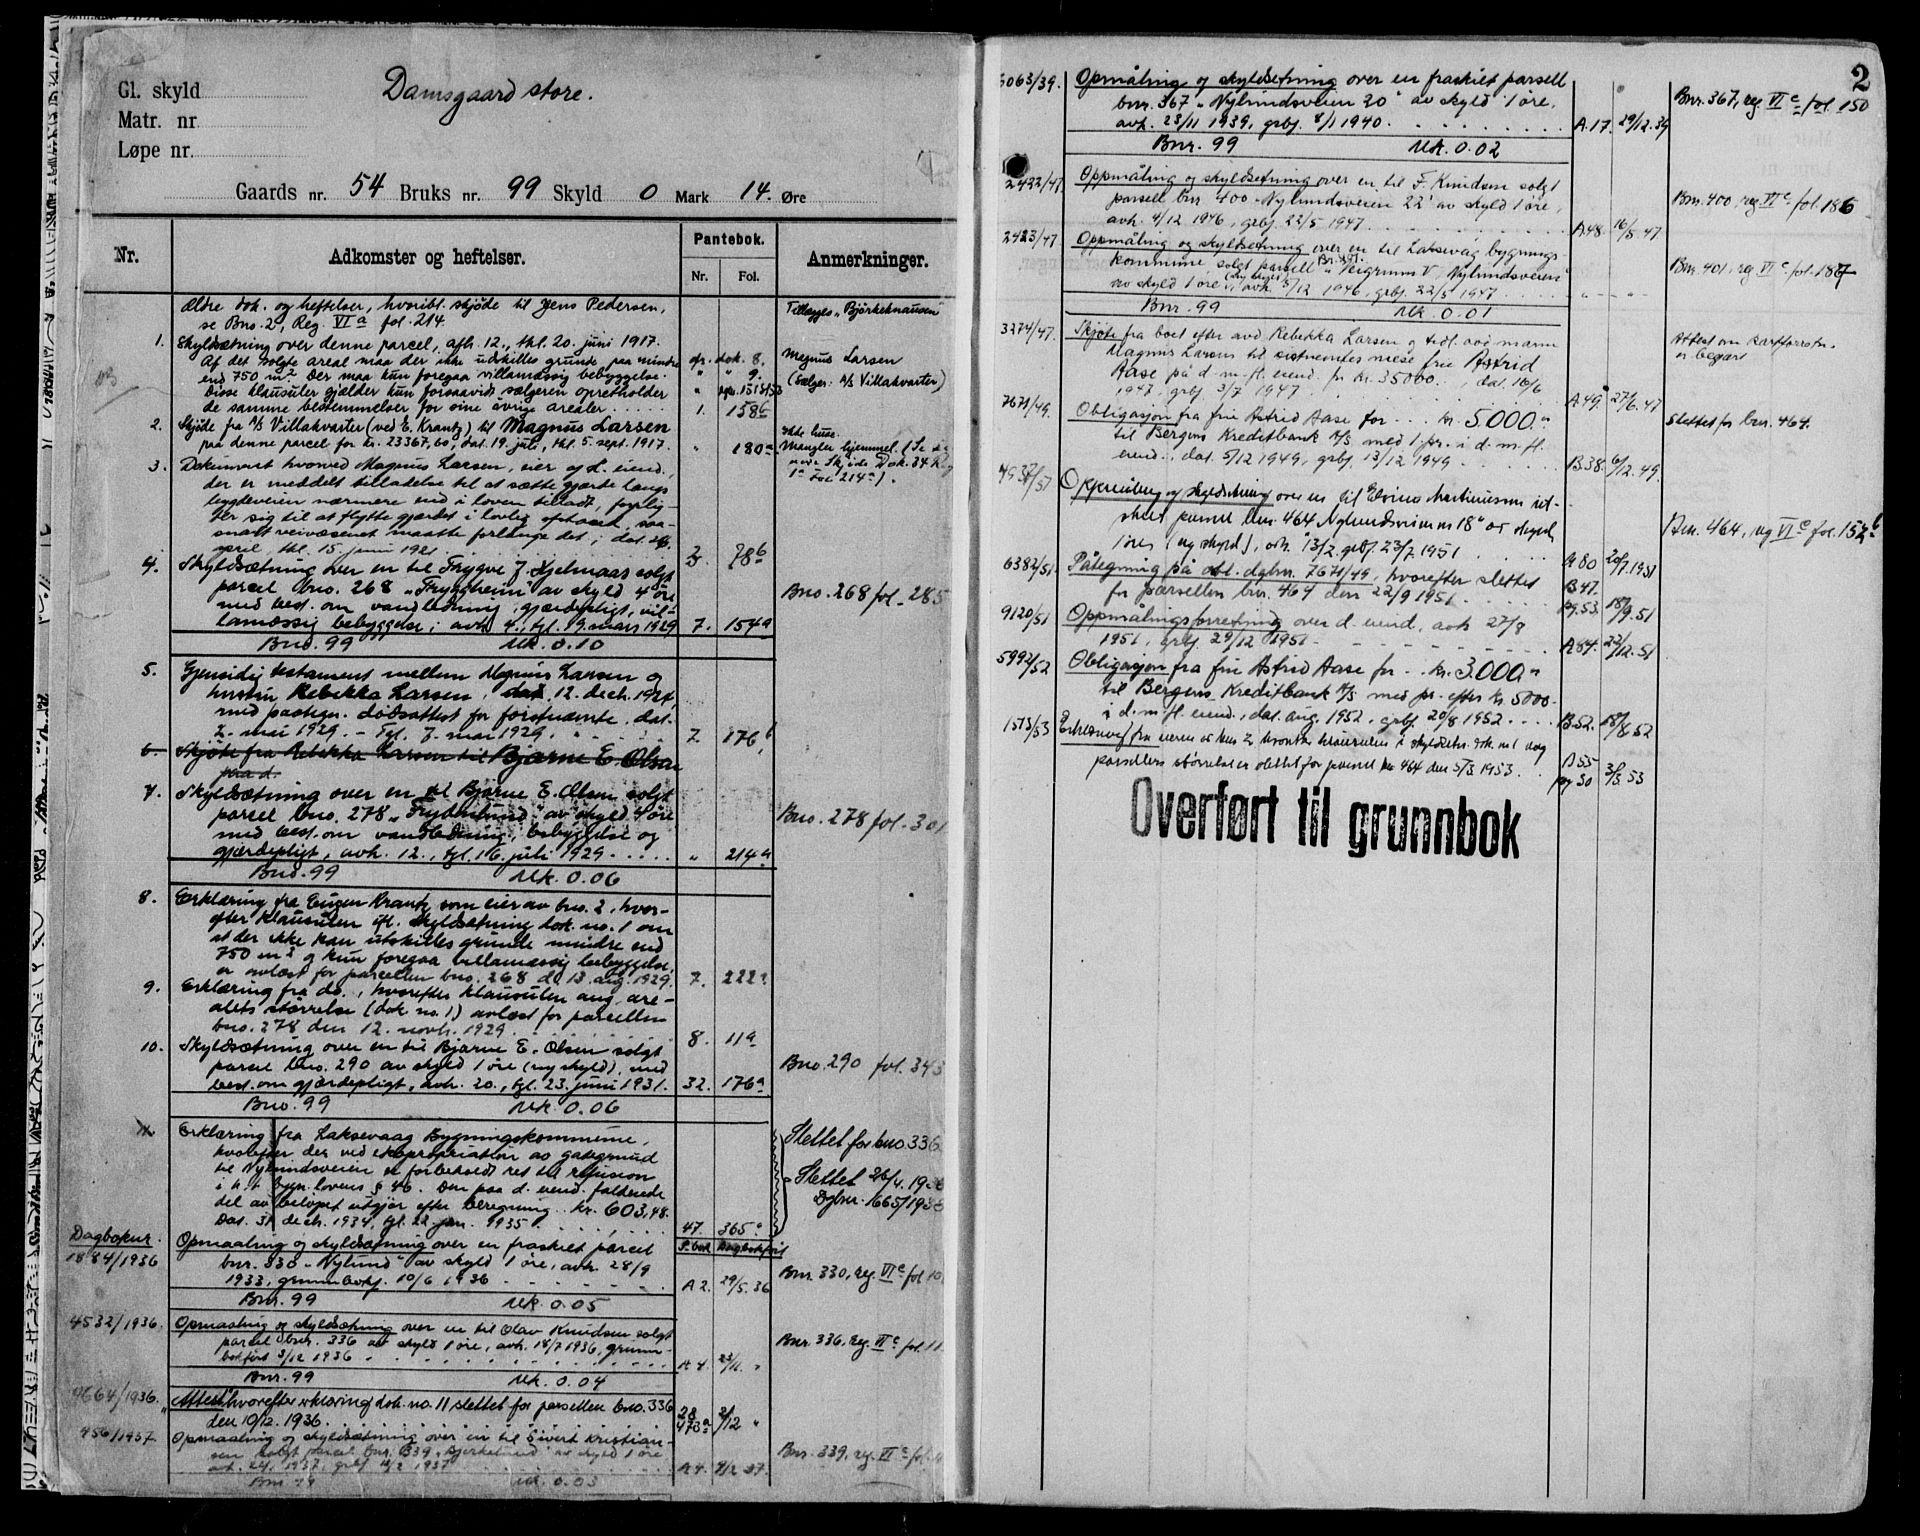 Damsgaard store.
Gl. skyld
Matr. nr
Løpe nr.
Gaards nr. 54 Bruks nr. 99 Skyld 0 Mark 14. Øre
Nr. Adkomster og heftelser. Pantebok. Nr. Fol. Anmerkninger.
Ældre dok. og heftelser, hvoribl. skjøde til Jens Pedersen,
se Bno. 2, Reg. VIa fol. 214.
Tillægges „Bjørkehaugen"
1. Skyldsætning over denne parcel, afh. 12., thl. 20. juni 1917.
Af det solgte areal maa der ikke udskilles grunde paa mindre
end 750 m². Der maa kun foregaa villamæssig bebyggelse.
Disse klausuler gjælder kun forsaavidt sælgeren opretholder
de samme bestemmelser for sine øvrige arealer 1. 158b
Magnus Larsen
(Sælger: A/S Villakvarter)
2. Skjøte fra A/S Villakvarter (ved E. Krantz) til Magnus Larsen
paa denne parcel for kr. 23367,60, dat. 19. juli, thl. 5. sept. 1917. " 180a
Ikke huse.
Mangler hjemmel.
3. Dokument hvorved Magnus Larsen, eier af d. eiend.,
der er meddelt tilladelse til at sætte gjærde langs
bygdeveien nærmere end i loven tilladt, forplig-
ter sig til at flytte gjærdet i lovlig afstand, saa-
snart veivæsenet maatte forlange det; dat. 26.
april, thl. 15. juni 1921. 3. 78b
4. Skyldsætning over en til Trygve J. Hjelmaas solgt
parcel bno. 268 „Trygheim" av skyld 4 øre
med best. om vandledning, gjærdepligt, vil-
lamæssig bebyggelse; avh. 4., tgl. 9. mars 1929 7. 154a
Bno. 268 fol. 285
Bno. 99 Mk. 0.10
5. Gjensidig testament mellem Magnus Larsen og
hustru Rebekka Larsen, dat. 12. decb. 1924,
med paategn. dødsattest for førstnævnte, dat.
2. mai 1929. - Tgl. 7. mai 1929. 7. 176b
6. Skjøte fra Rebekka Larsen til Bjarne E. Olsen
paa d.
7. Skyldsætning over en til Bjarne E. Olsen solgt
parcel bno. 278 „Frydenlund" av skyld 4 øre
med best. om vandledning, bebyggelse og
gjærdepligt, avh. 12., tgl. 16. juli 1929 " 214a
Bno. 278 fol. 301
Bno. 99 Mk. 0.06
8. Erklæring fra Eugen Krantz som eier av bno. 2, hvor-
efter klausulen ifl. skyldsætning dok. no. 1 om
at der ikke kan utskilles grunde mindre end
750 m² og kun foregaa villamæssig bebyggelse,
er avløst for parcellen bno. 268 d. 13. aug. 1929. 7. 222a
9. Erklæring fra do., hvorefter klausulen ang. are-
alets størrelse (dok no. 1) avløst for parcellen
bno. 278 den 12. novb. 1929. 8. 11a
10. Skyldsætning over en til Bjarne E. Olsen solgt
parcel bno. 290 av skyld 1 øre (ny skyld), med
best. om gjærdepligt, avh. 20., tgl. 23. juni 1931. 32. 176a
Bno. 290 fol. 343
Bno. 99 Mk. 0.06
11. Erklæring fra Laksevaag Bygningskommune,
hvorefter der ved ekspropriation av gategrund
til Nylundsveien er forbeholdt ret til refusion
i h.t. bygn. lovens § 46. Den paa d. eiend. faldende
del av beløpet utgjør efter beregning kr. 603,48.
Dat. 31 decb. 1934, tgl. 22 jan. 1935. 47. 365a
Slettet for bno. 336
Slettet 26/4. 1938
Dgbnr. 1665/1938
Dagboknr. P.bok Dagbokført
1884/1936 Opmaaling og skyldsætning over en fraskilt parcel
bnr. 330 „Nylund" av skyld 1 øre, avh. 28/9
1933, grunnbokf. 10/6 1936 A 2. 29/5. 36
Bnr. 330, reg. VIc fol. 10
Bnr. 99 Mk. 0.05
4532/1936. Opmaaling og skyldsætning over en til Olav Knudsen solgt
parcel bnr. 336 av skyld 1 øre, avh. 18/7 1936, grunn-
bokført 3/12 1936 A 4. 23/11. "
Bnr. 336, reg. VIc fol. 11
Bnr. 99 Mk. 0.04
4664/1936. Attest hvorefter erklæring dok. no. 11 slettet for parsellen bno. 336
den 10/12. 1936. 28 473a 2/12 "
456/1937. Opmaaling og skyldsætning over en til Sivert Kristian-
sen solgt parcel bnr. 339 „Bjerkelund" av skyld 1 øre
Bnr. 339, reg. VIc fol.
Bnr. 99 Mk. 0.03
2
5063/39. Opmåling og skyldsetning over en fraskilt parsell
bnr. 367 „Nylundsveien 20" av skyld 1 øre,
avh. 23/11 1939, grbf. 8/1 1940. A.17. 29/12.39
Bnr. 367, reg. VIc fol. 150
Bnr. 99 Mk. 0.02
2422/47 Oppmåling og skyldsetning over en til F. Knudsen solgt
parsell bnr 400 „Nylundsveien 22" av skyld 1 øre,
avh. 4/12 1946, grbf. 22/5 1947. A.48. 16/5.47
Bnr. 400, reg. VIc fol. 186
2423/47 Oppmåling og skyldsetning over en til Laksevåg bygnings-
kommune solgt parsell Bnr. 401 „Veigrunn V, Nylundsveien"
av skyld 1 øre (ny skyld), avh. 5/12 1946, grbf. 22/5 1947
Bnr. 401, reg. VIc fol. 187
Bnr. 99 Mk. 0.01
3274/47. Skjøte fra boet efter avd. Rebekka Larsen og tidl. avd. mann
Magnus Larsen til sistnevntes niese frue Astrid
Aase på d. m. fl. eiend. for kr. 35000.-, dat. 16/6
1947, grbf. 3/7 1947. A.49. 27/6.47
Attest om kartforretn.
er begært
7671/49. Obligasjon fra frue Astrid Aase for kr. 5.000.-
til Bergens Kreditbank A/S med 1. pr. i d. m. fl.
eiend., dat. 5/12 1949, grbf. 13/12 1949 B.38. 6/12.49.
Slettet for bnr. 464.
4937/51 Oppmåling og skyldsetning over en til Elvine Martinussen ut-
skilt parsell bnr. 464 Nylundsveien 18" av skyld
1 øre (ny skyld), avh. 13/2. grbf. 23/7 1951 A 80 20/7.1951
Bnr. 464, reg VIc fol. 152b
6382/51 Påtegning på obl. dgbnr. 7671/49, hvorefter slettet
for parsellen bnr. 464 den 22/9 1951 B 47. pg. 53. 18/9.51
9120/51 Oppmålingsforretning over d. eiend., avh 27/8
1951, grbf. 29/12 1951 A 84. 22/12.51
5992/52 Obligasjon fra frue Astrid Aase for kr. 3.000.-
til Bergens Kreditbank A/S med pr. efter kr. 5000.-
i d. m. fl. eiend., dat. aug. 1952, grbf. 20/8 1952 B.52. 18/8 52
1573/53 Erklæring fra eieren av bnr 2 hvoretter klausulen i skyldsetn. dok. nr 1 ang
parsellens størrelse er slettet for parsell bnr 464 den 5/3 1953. B 55 pg 30 3/3 53
Overført til grunnbok